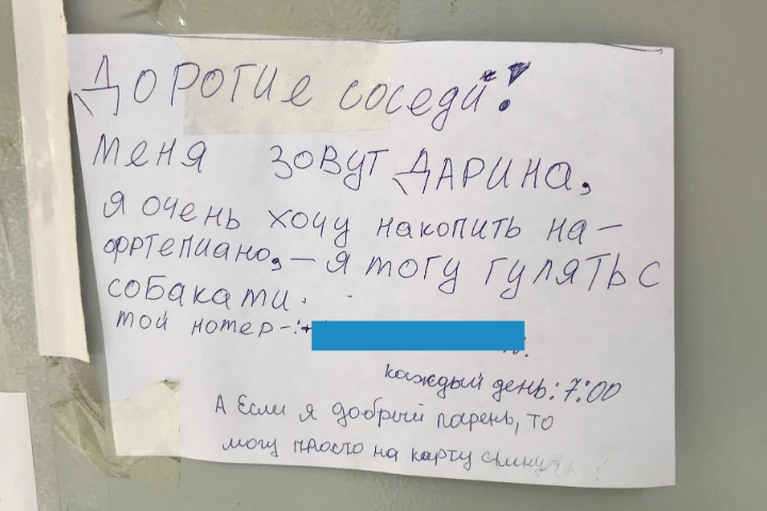 ДОРОГИЕ соседи!
меня зовут ДАРИНА,
я очень хочу накопить на-
фртепиано, - я могу гулять с
собаками.
мой номер-:+
каждый день: 7:00
А Если я добрый парень, то
могу просто на карту